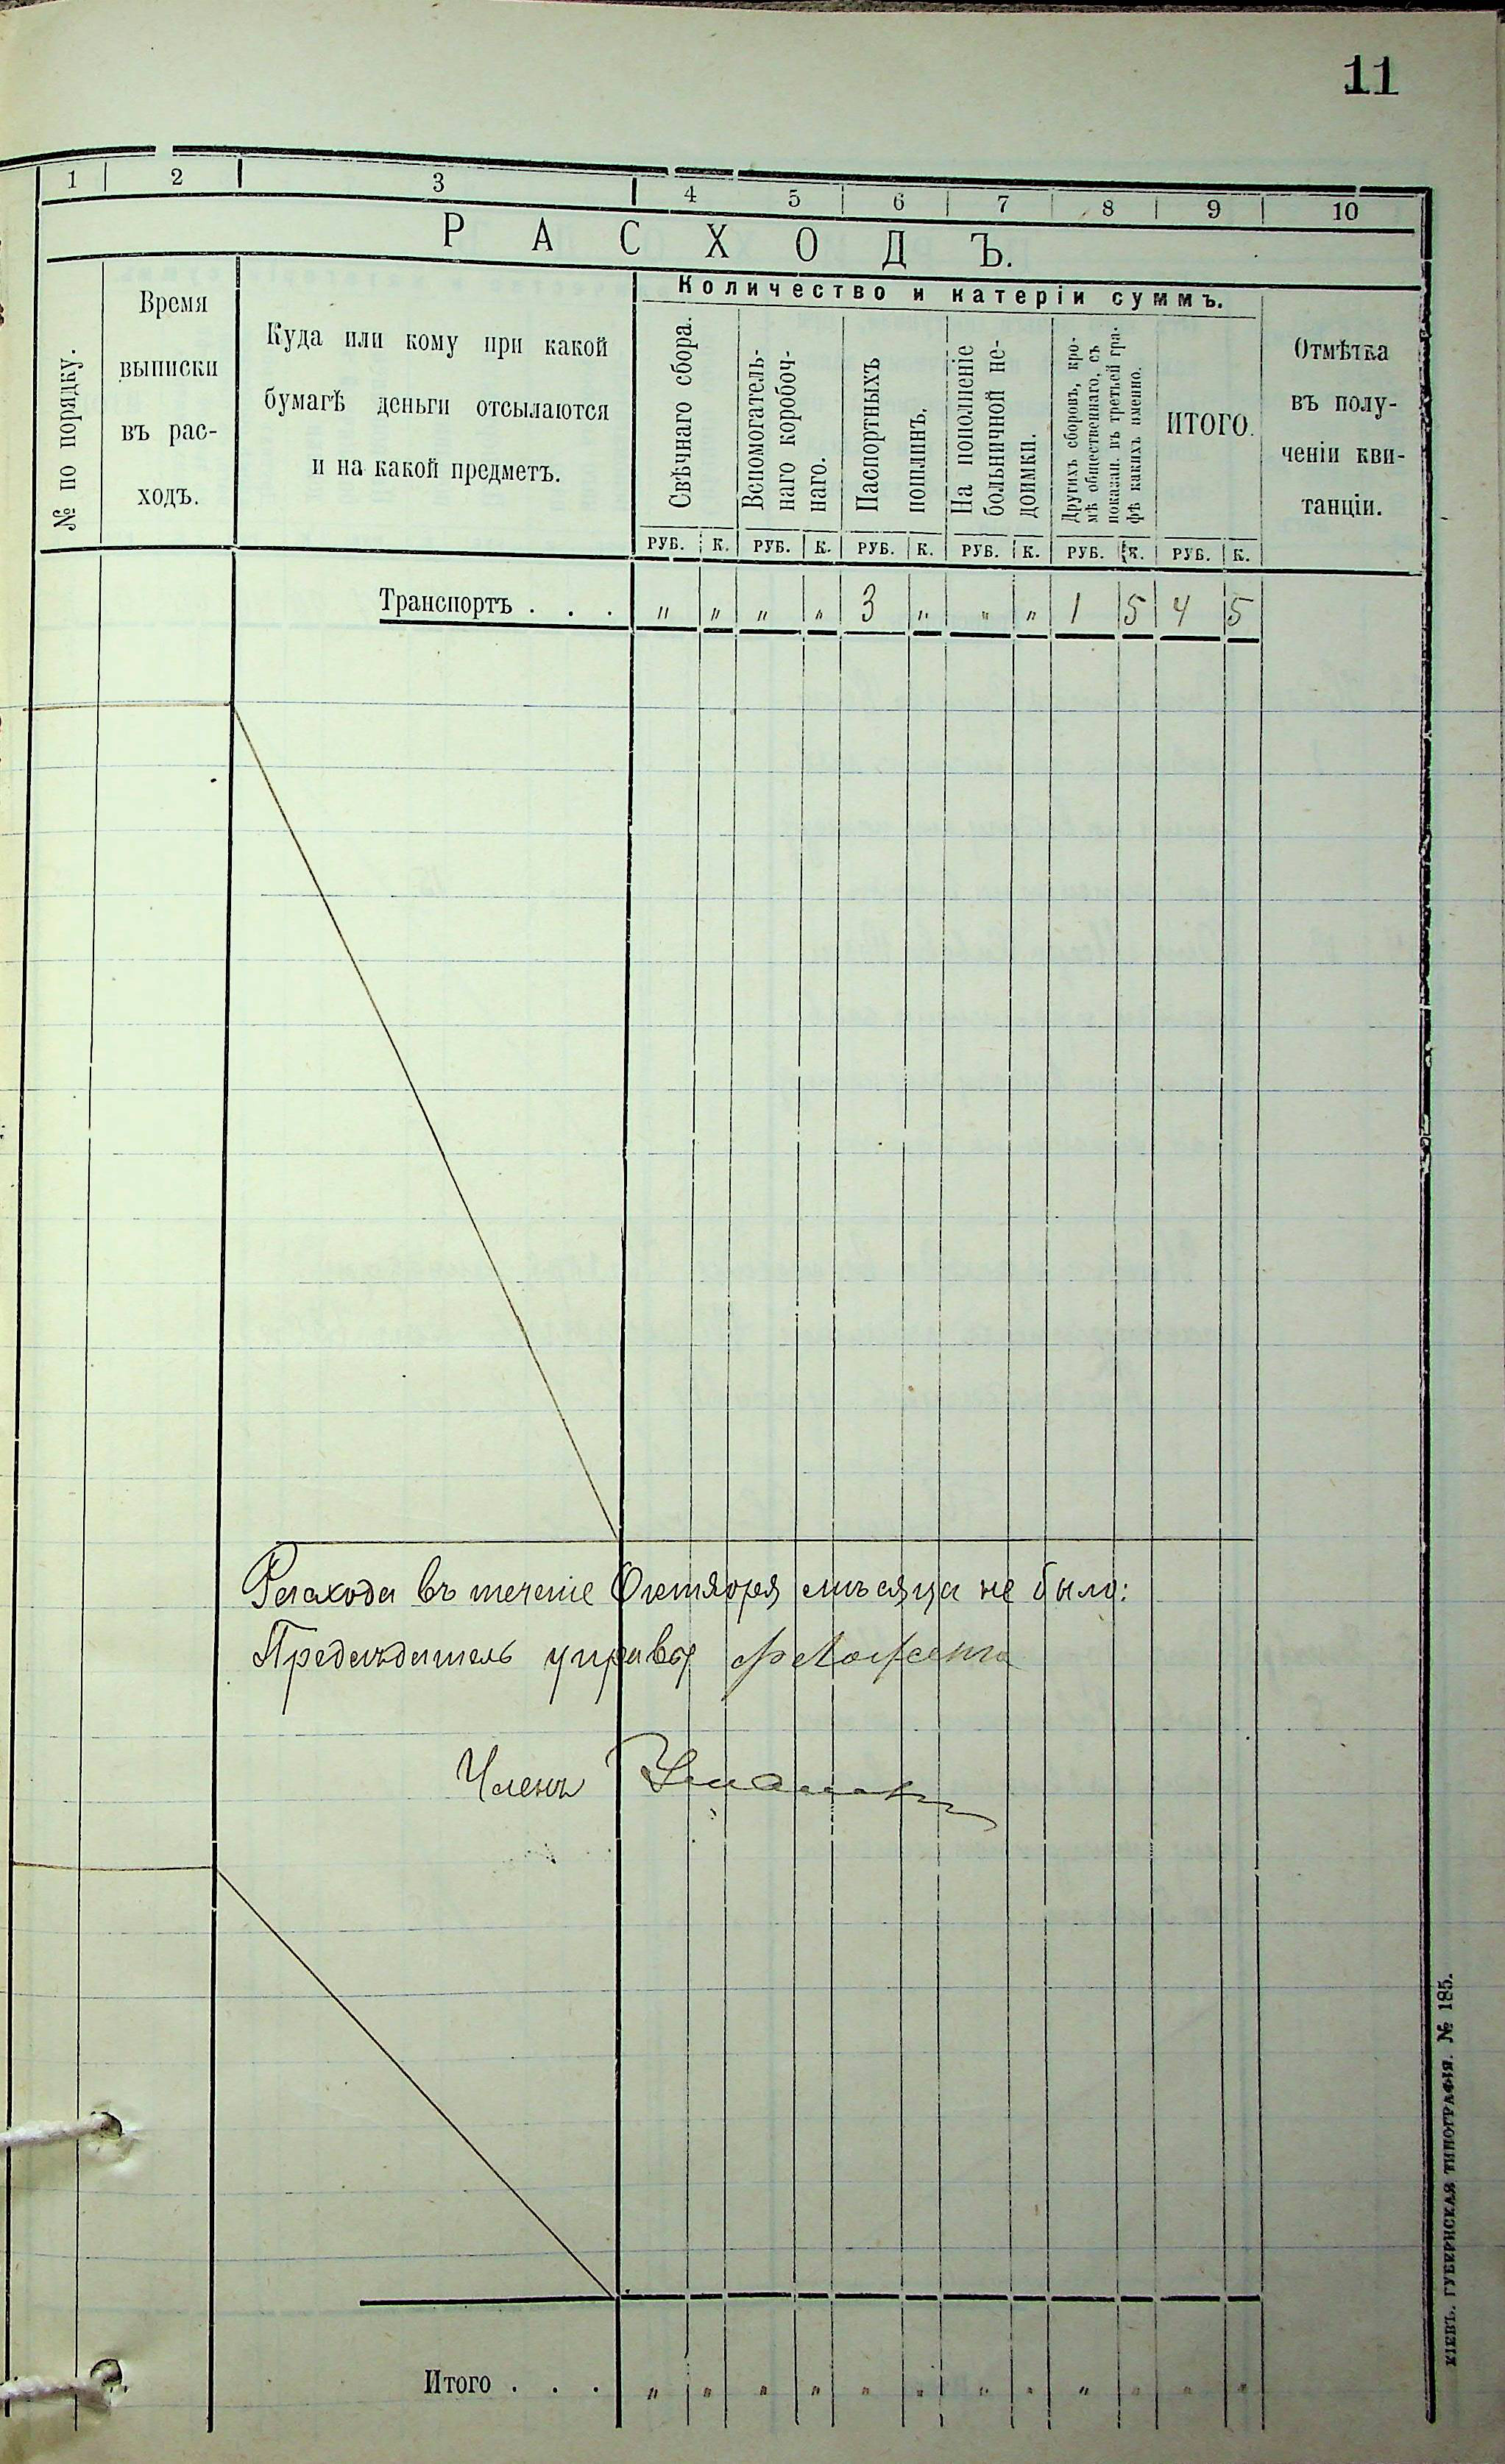 11
1 2 3 4 5 6 7 8 9 10
РАСХОДЪ.
№ по порядку.
Время
выписки
въ рас-
ходъ.
Куда или кому при какой
бумагѣ деньги отсылаются
и на какой предметъ.
Количество и катеріи суммъ.
Свѣчнаго сбора.
Вспомогатель-
наго коробоч-
наго.
Паспортныхъ
пошлинъ.
На пополненіе
больничной не-
доимки.
Другихъ сборовъ, кро-
мѣ общественнаго, съ
показан. въ третьей гра-
фѣ какихъ именно.
ИТОГО.
Отмѣтка
въ полу-
ченіи кви-
танціи.
РУБ. К. РУБ. К. РУБ. К. РУБ. К. РУБ. К. РУБ. К.
Транспортъ . . . " " " " 3 " " " 1 5 4 5
Расхода въ теченіе Октября мѣсяца не было:
Предсѣдатель управы
Членъ
Итого . . . " " " " " " " " " " " "
КІЕВЪ. ГУБЕРНСКАЯ ТИПОГРАФІЯ. № 185.